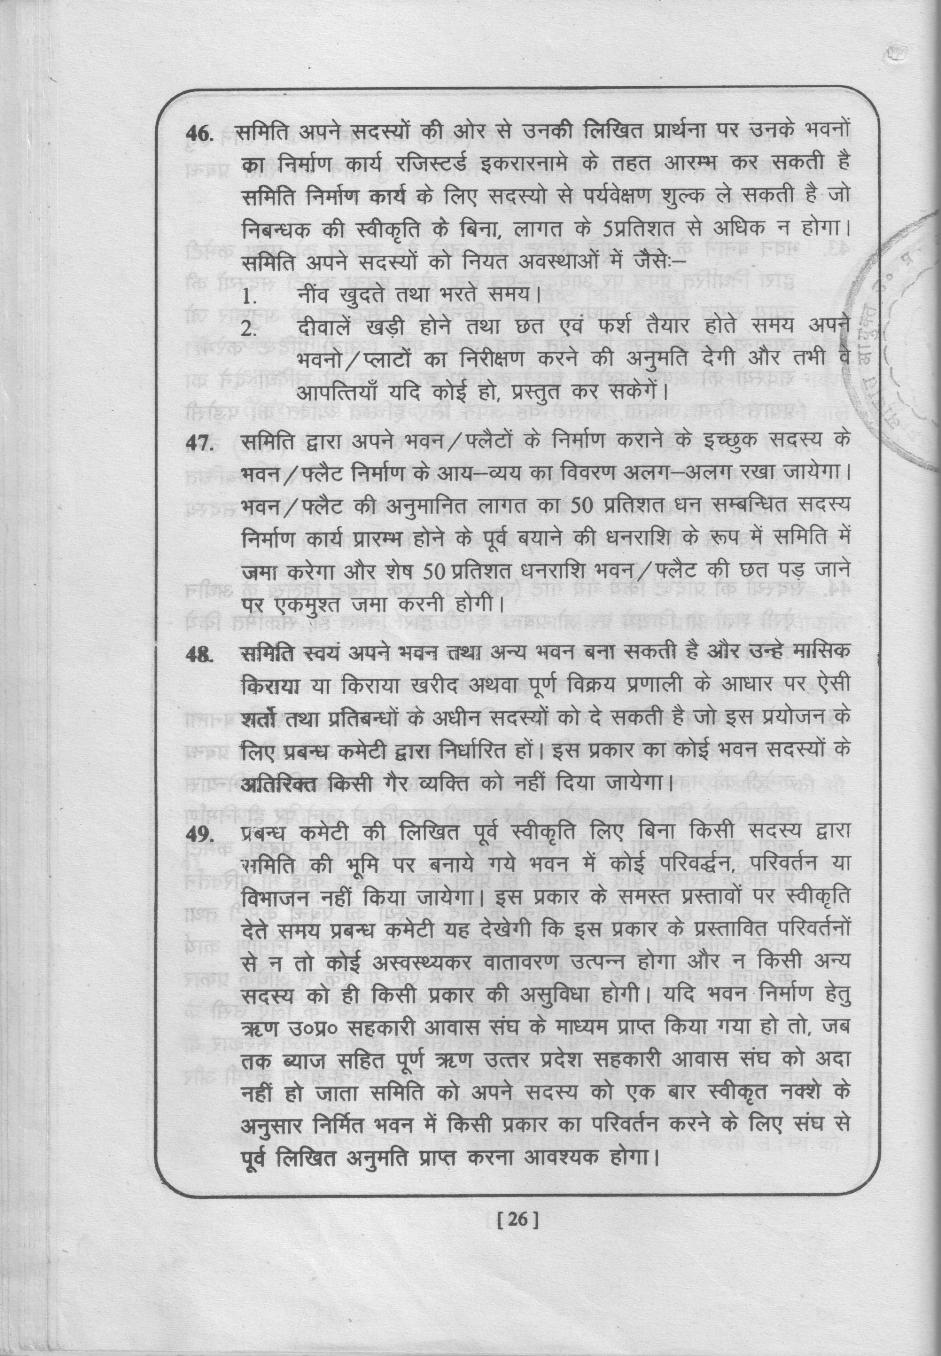 46. समिति अपने सदस्यों की ओर से उनकी लिखित प्रार्थना पर उनके भवनों
का निर्माण कार्य रजिस्टर्ड इकरारनामे के तहत आरम्भ कर सकती है
समिति निर्माण कार्य के लिए सदस्यो से पर्यवेक्षण शुल्क ले सकती है जो
निबन्धक की स्वीकृति के बिना, लागत के 5प्रतिशत से अधिक न होगा।
समिति अपने सदस्यों को नियत अवस्थाओं में जैसेः–
1. नींव खुदते तथा भरते समय।
2. दीवालें खड़ी होने तथा छत एवं फर्श तैयार होते समय अपने
भवनो/प्लाटों का निरीक्षण करने की अनुमति देगी और तभी वे
आपत्तियाँ यदि कोई हो, प्रस्तुत कर सकेगें।
47. समिति द्वारा अपने भवन/फ्लैटों के निर्माण कराने के इच्छुक सदस्य के
भवन/फ्लैट निर्माण के आय–व्यय का विवरण अलग–अलग रखा जायेगा।
भवन/फ्लैट की अनुमानित लागत का 50 प्रतिशत धन सम्बन्धित सदस्य
निर्माण कार्य प्रारम्भ होने के पूर्व बयाने की धनराशि के रूप में समिति में
जमा करेगा और शेष 50 प्रतिशत धनराशि भवन/फ्लैट की छत पड़ जाने
पर एकमुश्त जमा करनी होगी।
48. समिति स्वयं अपने भवन तथा अन्य भवन बना सकती है और उन्हे मासिक
किराया या किराया खरीद अथवा पूर्ण विक्रय प्रणाली के आधार पर ऐसी
शर्तो तथा प्रतिबन्धों के अधीन सदस्यों को दे सकती है जो इस प्रयोजन के
लिए प्रबन्ध कमेटी द्वारा निर्धारित हों। इस प्रकार का कोई भवन सदस्यों के
अतिरिक्त किसी गैर व्यक्ति को नहीं दिया जायेगा।
49. प्रबन्ध कमेटी की लिखित पूर्व स्वीकृति लिए बिना किसी सदस्य द्वारा
समिति की भूमि पर बनाये गये भवन में कोई परिवर्द्धन, परिवर्तन या
विभाजन नहीं किया जायेगा। इस प्रकार के समस्त प्रस्तावों पर स्वीकृति
देते समय प्रबन्ध कमेटी यह देखेगी कि इस प्रकार के प्रस्तावित परिवर्तनों
से न तो कोई अस्वस्थ्यकर वातावरण उत्पन्न होगा और न किसी अन्य
सदस्य को ही किसी प्रकार की असुविधा होगी। यदि भवन निर्माण हेतु
ऋण उ०प्र० सहकारी आवास संघ के माध्यम प्राप्त किया गया हो तो, जब
तक ब्याज सहित पूर्ण ऋण उत्तर प्रदेश सहकारी आवास संघ को अदा
नहीं हो जाता समिति को अपने सदस्य को एक बार स्वीकृत नक्शे के
अनुसार निर्मित भवन में किसी प्रकार का परिवर्तन करने के लिए संघ से
पूर्व लिखित अनुमति प्राप्त करना आवश्यक होगा।
[ 26 ]